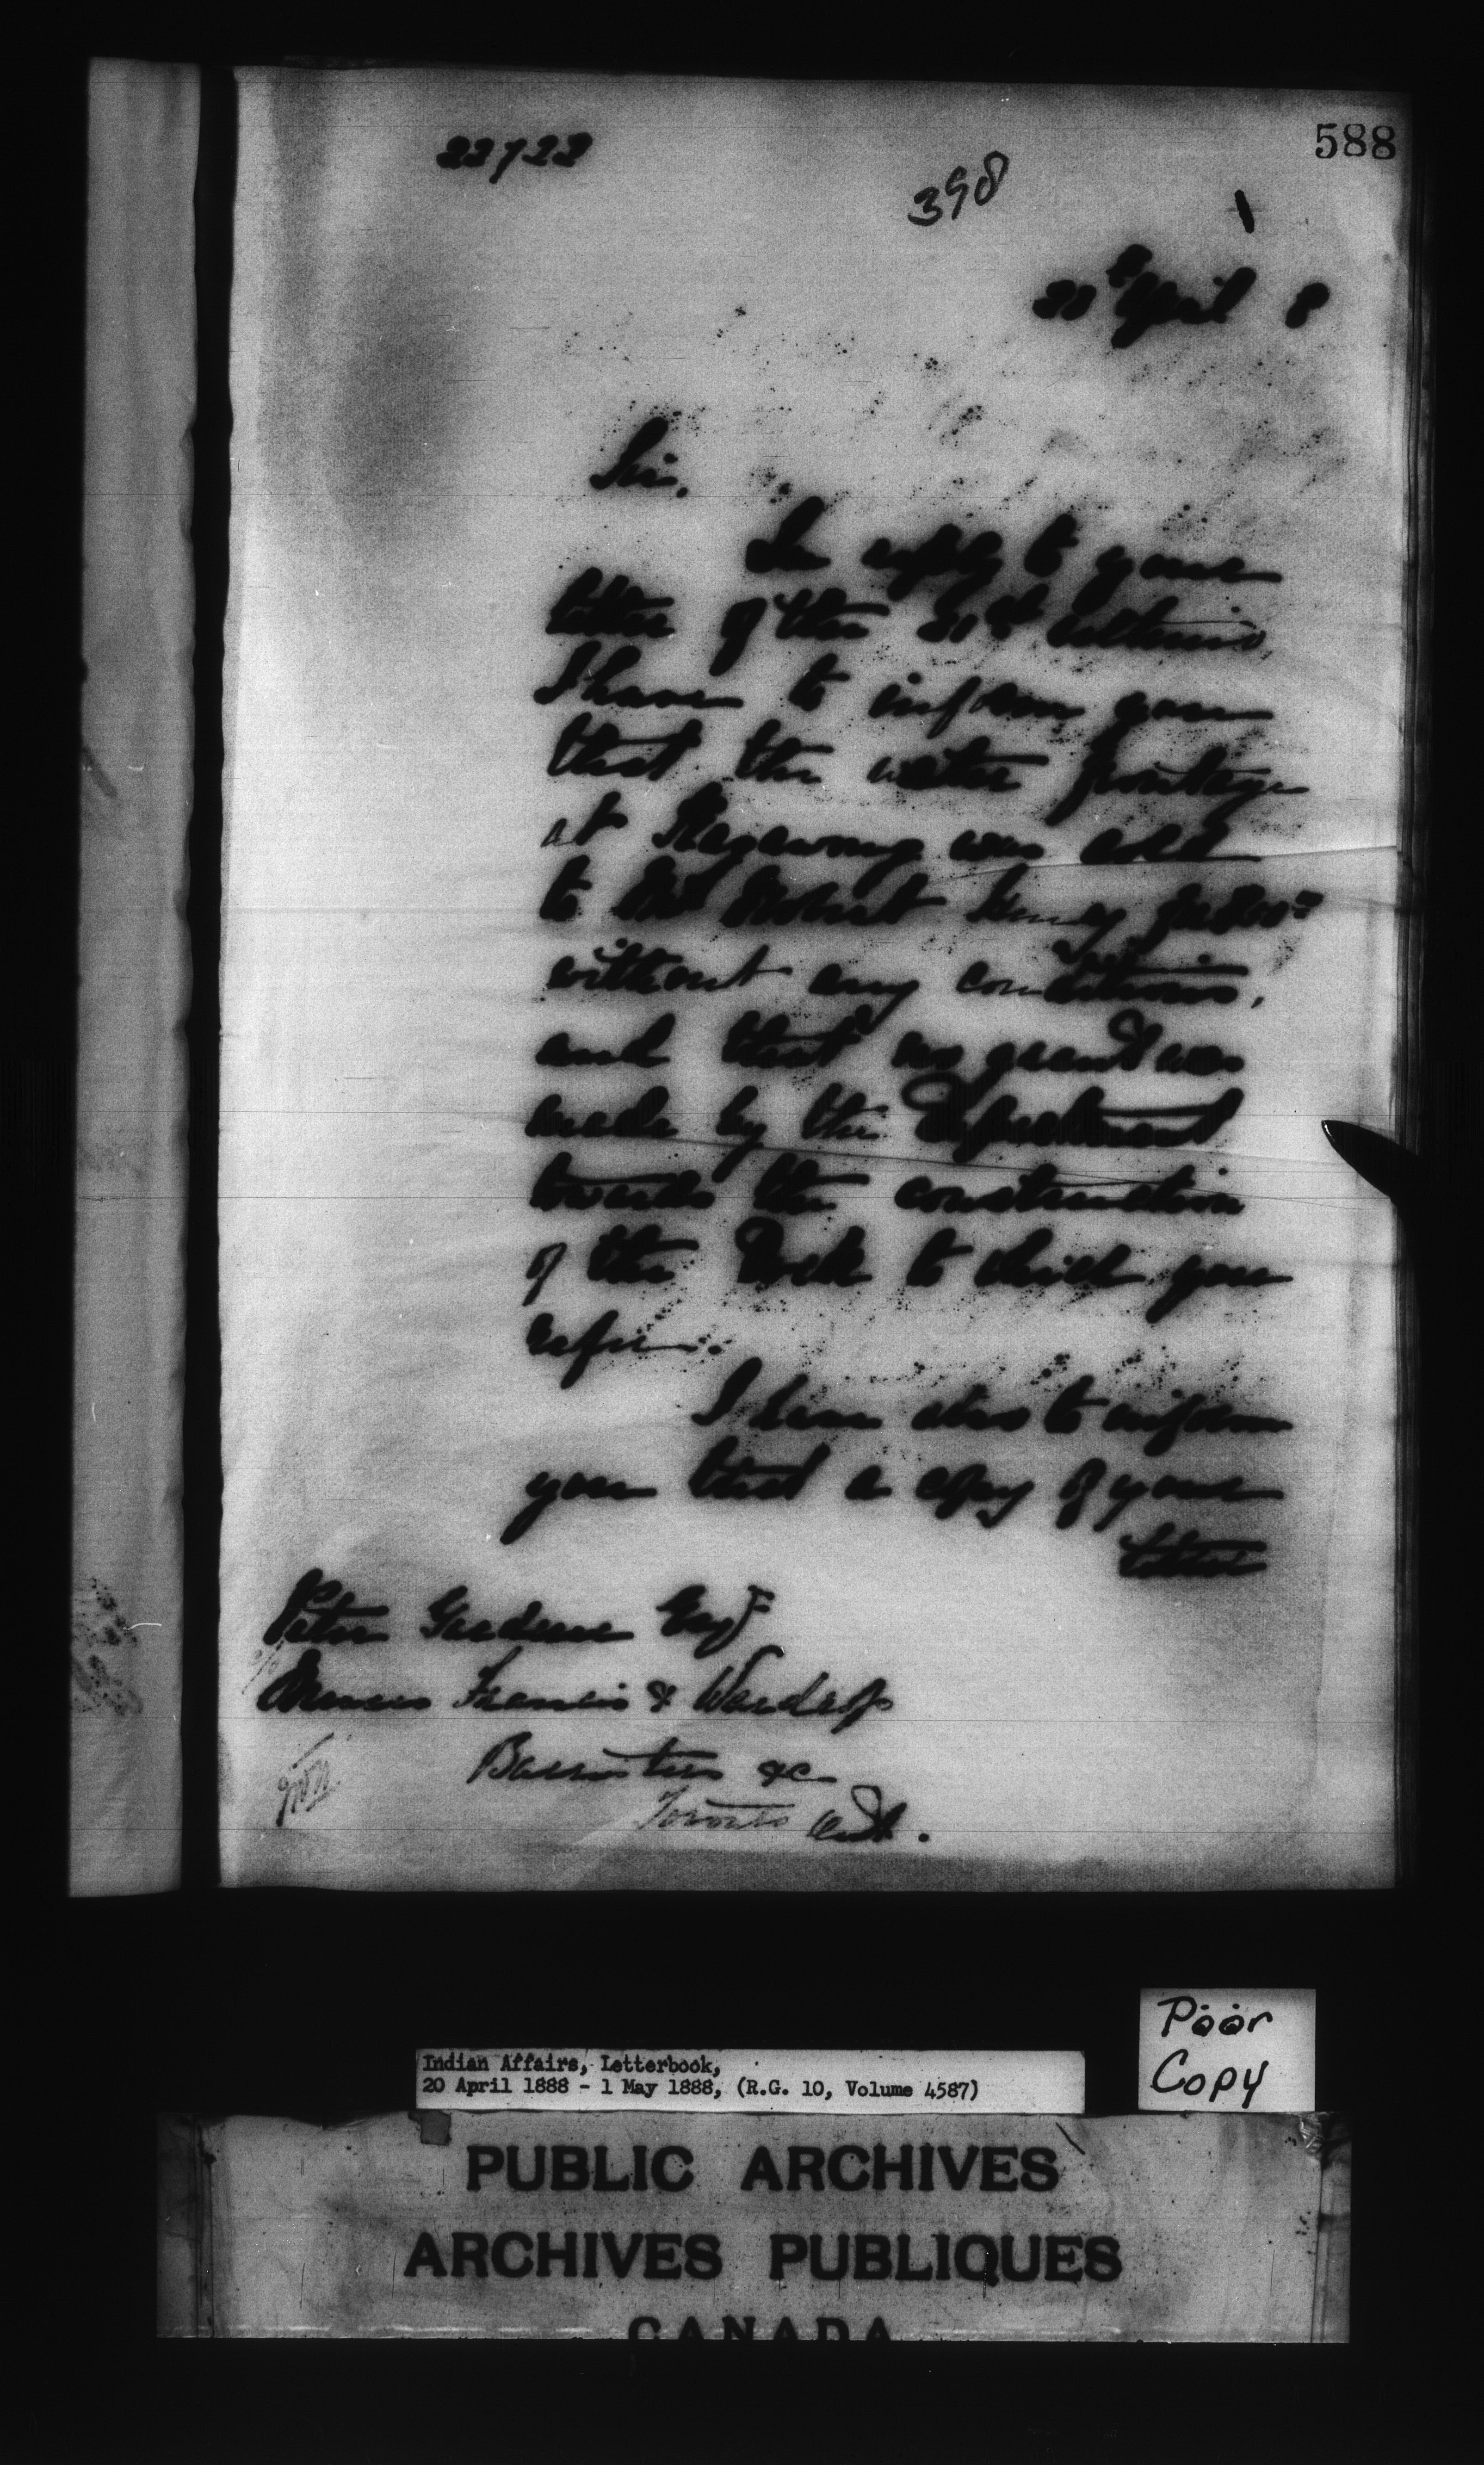 22722
588
398
April 8
Sir,
In reply to your
letter of the 21st ultimo,
I have to inform you
that the water frontage
at was sold
to Mr Robert for
without any conditions,
and that no grant was
made by the Department
towards the construction
of the Dock to which you
refer.
I have also to inform
you that a copy of your
letter
Peter Esqr
Messrs Francis & Wardrop
Barristers &c
Toronto Ont.
Poor
Copy
Indian Affairs, Letterbook,
20 April 1888 - 1 May 1888, (R.G. 10, Volume 4587)
PUBLIC ARCHIVES
ARCHIVES PUBLIQUES
CANADA